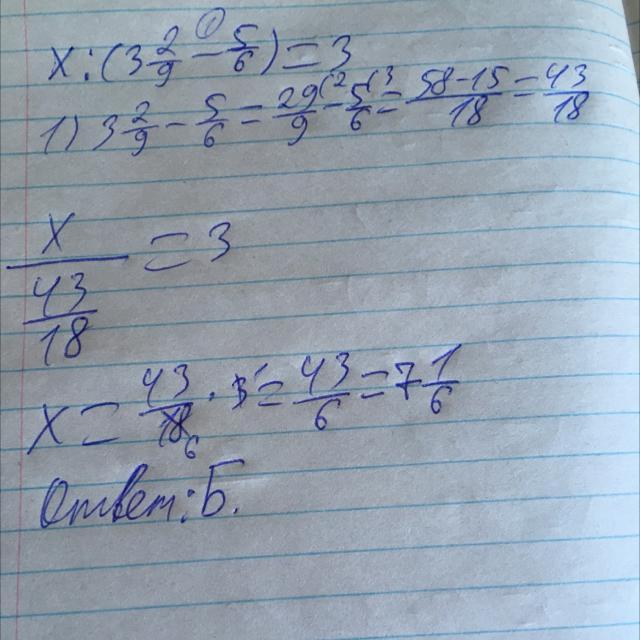 x:(3 2/9 - 5/6) = 3
1) 3 2/9 - 5/6 = 29/9 (2 - 5/6 (3 = 58-15/18 = 43/18
x / 43/18 = 3
x = 43/18 6 · 3 1 = 43/6 = 7 1/6
Ответ: Б.